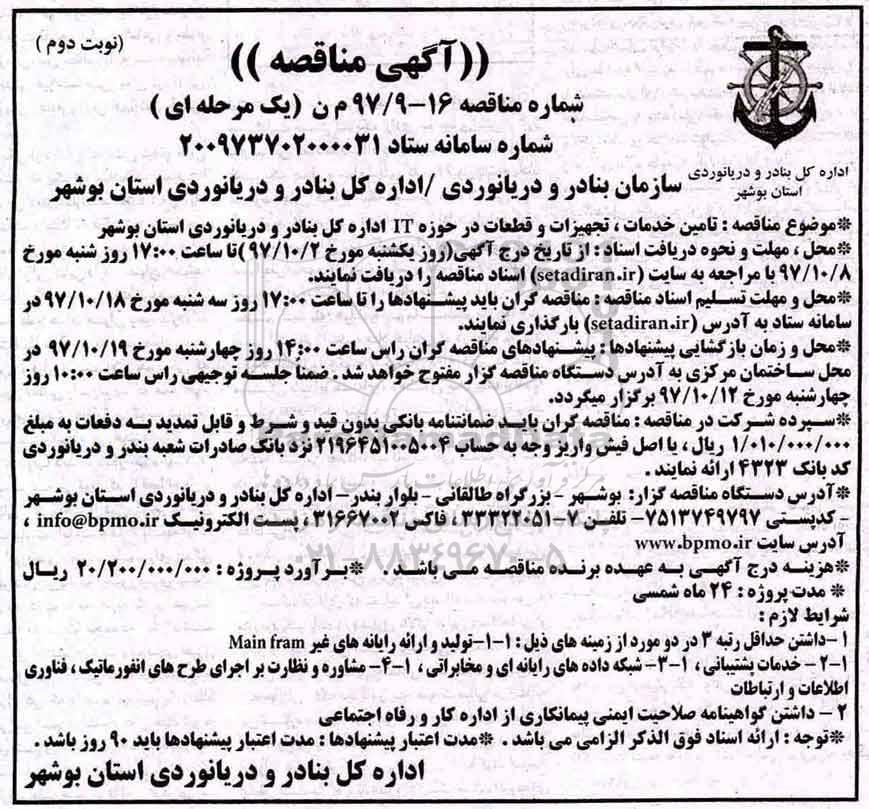 (نوبت دوم)
((آگهی مناقصه))
شماره مناقصه ۱۶-۹۷/۹ م ن (یک مرحله ای)
شماره سامانه ستاد ۲۰۰۹۷۳۷۰۲۰۰۰۰۳۱
اداره کل بنادر و دریانوردی
استان بوشهر
سازمان بنادر و دریانوردی /اداره کل بنادر و دریانوردی استان بوشهر
*موضوع مناقصه : تامین خدمات ، تجهیزات و قطعات در حوزه IT اداره کل بنادر و دریانوردی استان بوشهر
*محل ، مهلت و نحوه دریافت اسناد : از تاریخ درج آگهی(روز یکشنبه مورخ ۹۷/۱۰/۲)تا ساعت ۱۷:۰۰ روز شنبه مورخ
۹۷/۱۰/۸ با مراجعه به سایت (setadiran.ir) اسناد مناقصه را دریافت نمایند.
*محل و مهلت تسلیم اسناد مناقصه : مناقصه گران باید پیشنهادها را تا ساعت ۱۷:۰۰ روز سه شنبه مورخ ۹۷/۱۰/۱۸ در
سامانه ستاد به آدرس (setadiran.ir) بارگذاری نمایند.
*محل و زمان بازگشایی پیشنهادها : پیشنهادهای مناقصه گران راس ساعت ۱۴:۰۰ روز چهارشنبه مورخ ۹۷/۱۰/۱۹ در
محل ساختمان مرکزی به آدرس دستگاه مناقصه گزار مفتوح خواهد شد . ضمناً جلسه توجیهی راس ساعت ۱۰:۰۰ روز
چهارشنبه مورخ ۹۷/۱۰/۱۲ برگزار میگردد.
*سپرده شرکت در مناقصه : مناقصه گران باید ضمانتنامه بانکی بدون قید و شرط و قابل تمدید به دفعات به مبلغ
۱/۰۱۰/۰۰۰/۰۰۰ ریال ، یا اصل فیش واریز وجه به حساب ۲۱۹۶۴۵۱۰۰۵۰۰۴ نزد بانک صادرات شعبه بندر و دریانوردی
کد بانک ۴۳۲۳ ارائه نمایند .
*آدرس دستگاه مناقصه گزار: بوشهر - بزرگراه طالقانی - بلوار بندر- اداره کل بنادر و دریانوردی استان بوشهر
- کدپستی ۷۵۱۳۷۴۹۷۹۷- تلفن ۷-۳۳۳۲۲۰۵۱ ، فاکس ۳۱۶۶۷۰۰۲ ، پست الکترونیک info@bpmo.ir ،
آدرس سایت www.bpmo.ir
*هزینه درج آگهی به عهده برنده مناقصه می باشد . *برآورد پروژه : ۲۰/۲۰۰/۰۰۰/۰۰۰ ریال
* مدت پروژه : ۲۴ ماه شمسی
شرایط لازم :
۱-داشتن حداقل رتبه ۳ در دو مورد از زمینه های ذیل : ۱-۱-تولید و ارائه رایانه های غیر Main fram
۱-۲- خدمات پشتیبانی ، ۱-۳- شبکه داده های رایانه ای و مخابراتی ، ۱-۴- مشاوره و نظارت بر اجرای طرح های انفورماتیک ، فناوری
اطلاعات و ارتباطات
۲ - داشتن گواهینامه صلاحیت ایمنی پیمانکاری از اداره کار و رفاه اجتماعی
*توجه : ارائه اسناد فوق الذکر الزامی می باشد . *مدت اعتبار پیشنهادها : مدت اعتبار پیشنهادها باید ۹۰ روز باشد .
اداره کل بنادر و دریانوردی استان بوشهر
۰۲۱-۸۸۳۴۹۶۷۰-۵